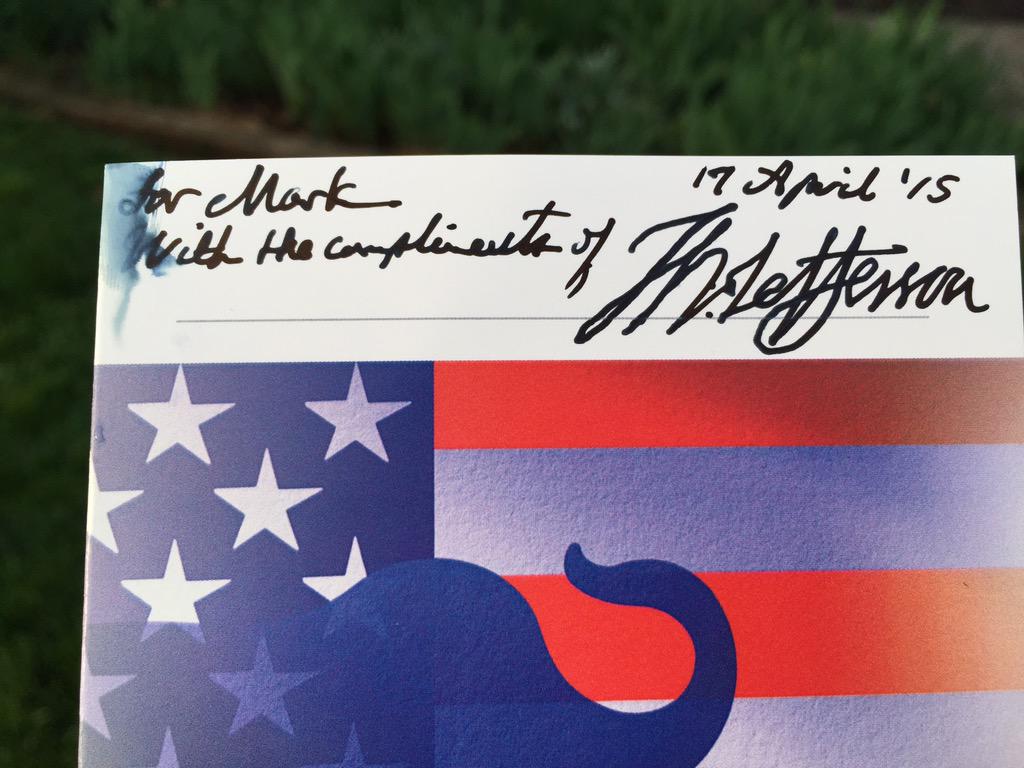 for Mark
17 April '15
With the compliments of
Th. Jefferson